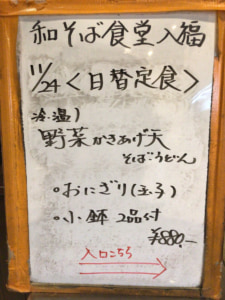 和そば食堂入福
11/24〈日替定食〉
冷・温)
野菜かきあげ天
そば・うどん
・おにぎり(玉子)
・小鉢 2品付
¥880-
入口こちら